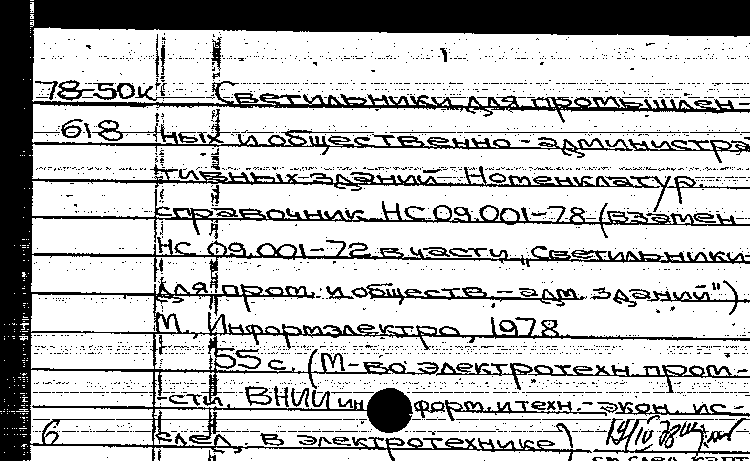 78-50к Светильники для промышлен-
618 ных и общественно-администра
тивных зданий. Номенклатур.
справочник НС 09.001-78 (взамен
НС 09.001-72 в части „Светильники
для пром. и обществ.-адм. зданий")
М., Информэлектро, 1978
55 с. (М-во электротехн. пром-
-сти. ВНИИ информ. и техн.-экон. ис-
6 след. в электротехнике)
см. след. карт